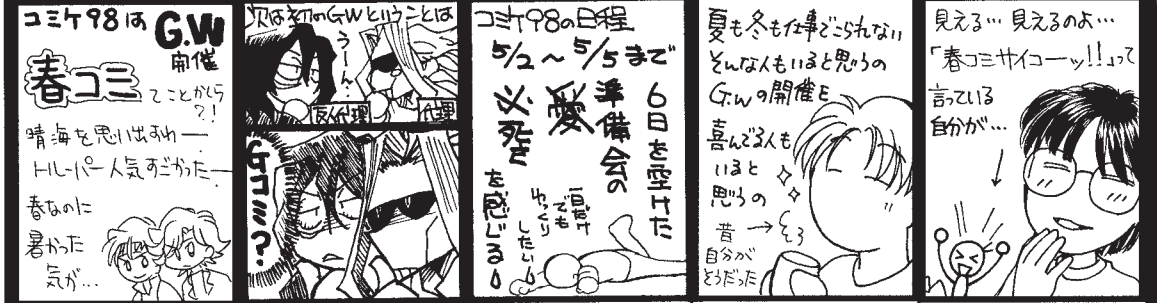 コミケ98は
G.W
開催
春コミ
てことかしら
?!
晴海を思い出すわー
トルーパー人気すごかったー
春なのに
暑かった
気が…
次は初のGWということは
うーん…
友人代理
代理
GコミI?
コミケ98の日程
5/2～5/5まで
6日を空けた
準備会の
愛
必死さ
を感じる
一日だけ
でも
ゆっくり
したい
夏も冬も仕事でこられない
そんな人もいると思うの
G.Wの開催を
喜んでる人も
いると
思うの
昔→
そう
自分が
そうだった
見える…見えるのよ…
「春コミサイコーッ!!」って
言っている
自分が…